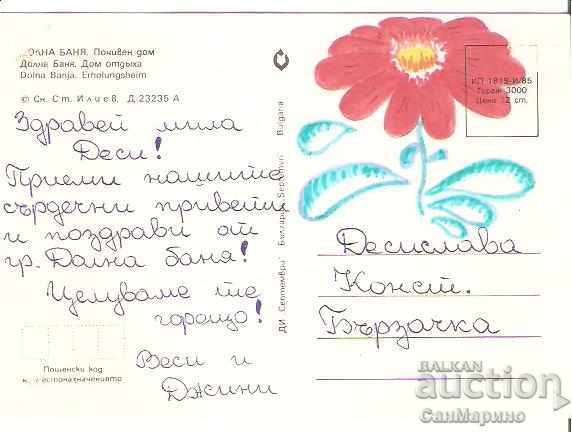 ДОЛНА БАНЯ. Почивен дом
Долна Баня. Дом отдыха
Dolna Banja. Erholungsheim
© Сн. Ст. Илиев. Д.23235 А
Здравей мила
Деси!
Приеми нашите
сърдечни привети
и поздрави от
гр. Долна баня!
Целуваме те
горещо!
Веси и
Джини
Пощенски код
на местоназначението
ДИ „Септември" България Septemvri Bulgaria
ИП 1815-И/85
Тираж 3000
Цена 12 ст.
Десислава
Конст.
Бързачка
BALKAN
auction
СанМарино